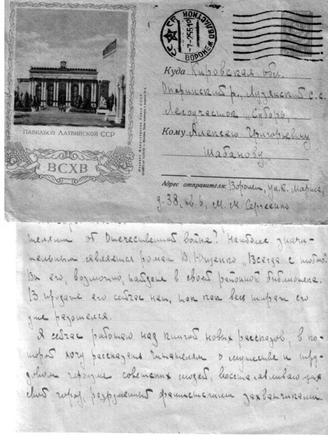 ПАВИЛЬОН ЛАТВИЙСКОЙ ССР
ВСХВ
ВОРОНЕЖ
Куда Кировская обл.
Опаринский р.,
Кому Алексею Григорьевичу
Шабанову
Адрес отправителя: Воронеж, ул. К. Маркса,
д. 38, кв. 6, М. М. Сергеенко
об Отечественной войне? Наиболее значи-
тельным является роман
Вы его, возможно, найдете в своей районной библиотеке.
В продаже его сейчас нет, так как весь тираж его
уже разошелся.
Я сейчас работаю над книгой новых рассказов, в ко-
торой хочу рассказать читателям о мужестве и тру-
довом героизме советских людей, восстанавливающих
свой город, разрушенный фашистскими захватчиками.